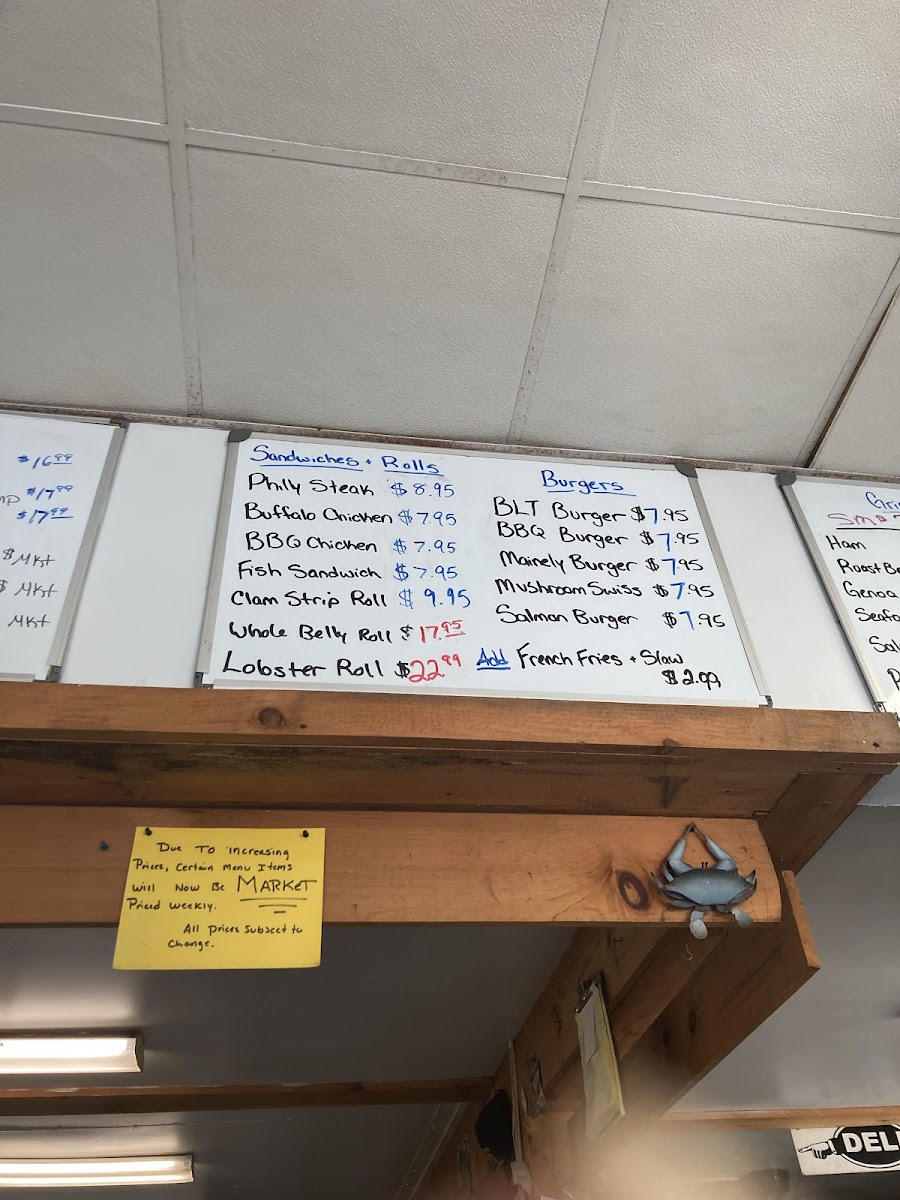 $16.99
$17.99
$17.99
$Mkt
$ Mkt
Mkt
Sandwiches + Rolls
Philly Steak $8.95
Buffalo Chicken $7.95
BBQ Chicken $7.95
Fish Sandwich $7.95
Clam Strip Roll $9.95
Whole Belly Roll $17.95
Lobster Roll $22.99
Burgers
BLT Burger $7.95
BBQ Burger $7.95
Mainely Burger $7.95
Mushroom Swiss $7.95
Salmon Burger $7.95
Add French Fries + Slaw
$2.99
Ham
Roast Be
Genoa
Seafo
Sal
Due To increasing
Prices, Certain Menu Items
will Now Be MARKET
Priced weekly.
All prices subject to
Change.
DELI